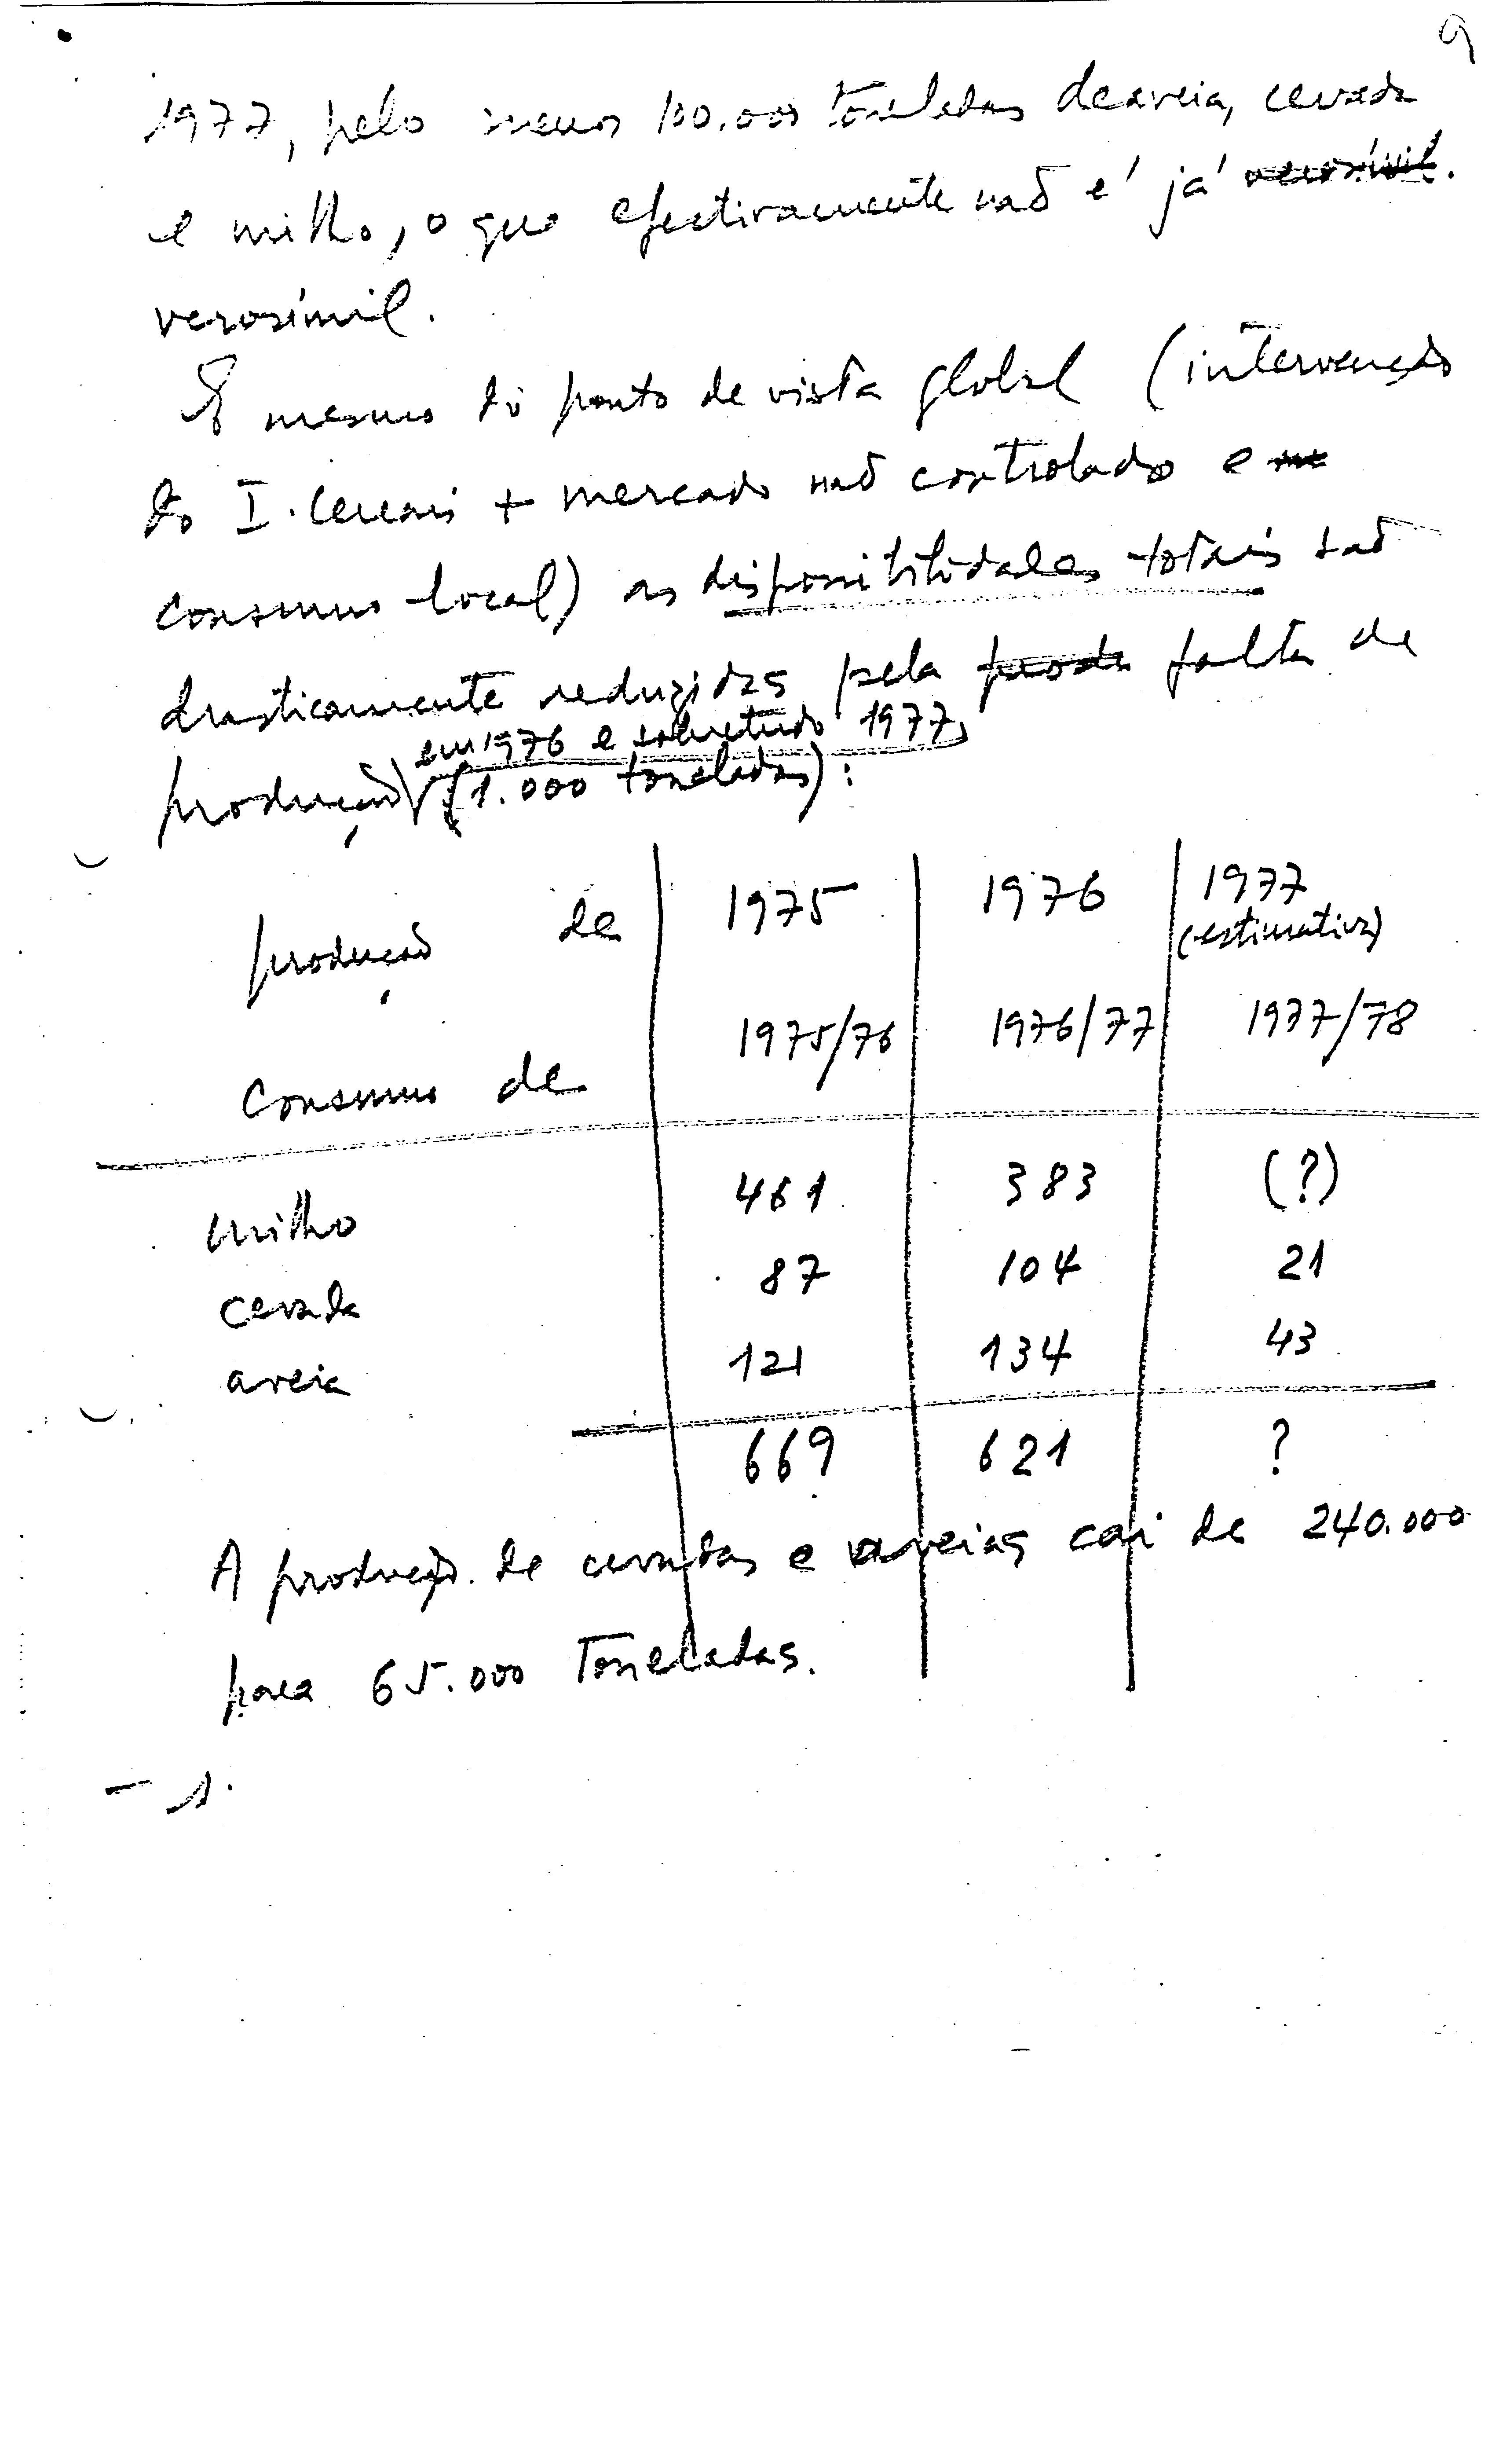 9
1977, pelo menos 100.000 toneladas de aveia, cevada
e milho, o que efectivamente não é já verosímil.
verosímil.
E mesmo do ponto de vista global (intervenção
do I. Cereais + mercado não controlado e
consumo local) as disponibilidades totais são
drasticamente reduzidas pela falta de
em 1976 e sobretudo 1977
produção (1.000 toneladas):
produção de 1975 1976 1977
(estimativa)
consumo de 1975/76 1976/77 1977/78
milho 461 383 (?)
cevada 87 104 21
aveia 121 134 43
669 621 ?
A produção de cevadas e aveias cai de 240.000
para 65.000 Toneladas.
- 1.